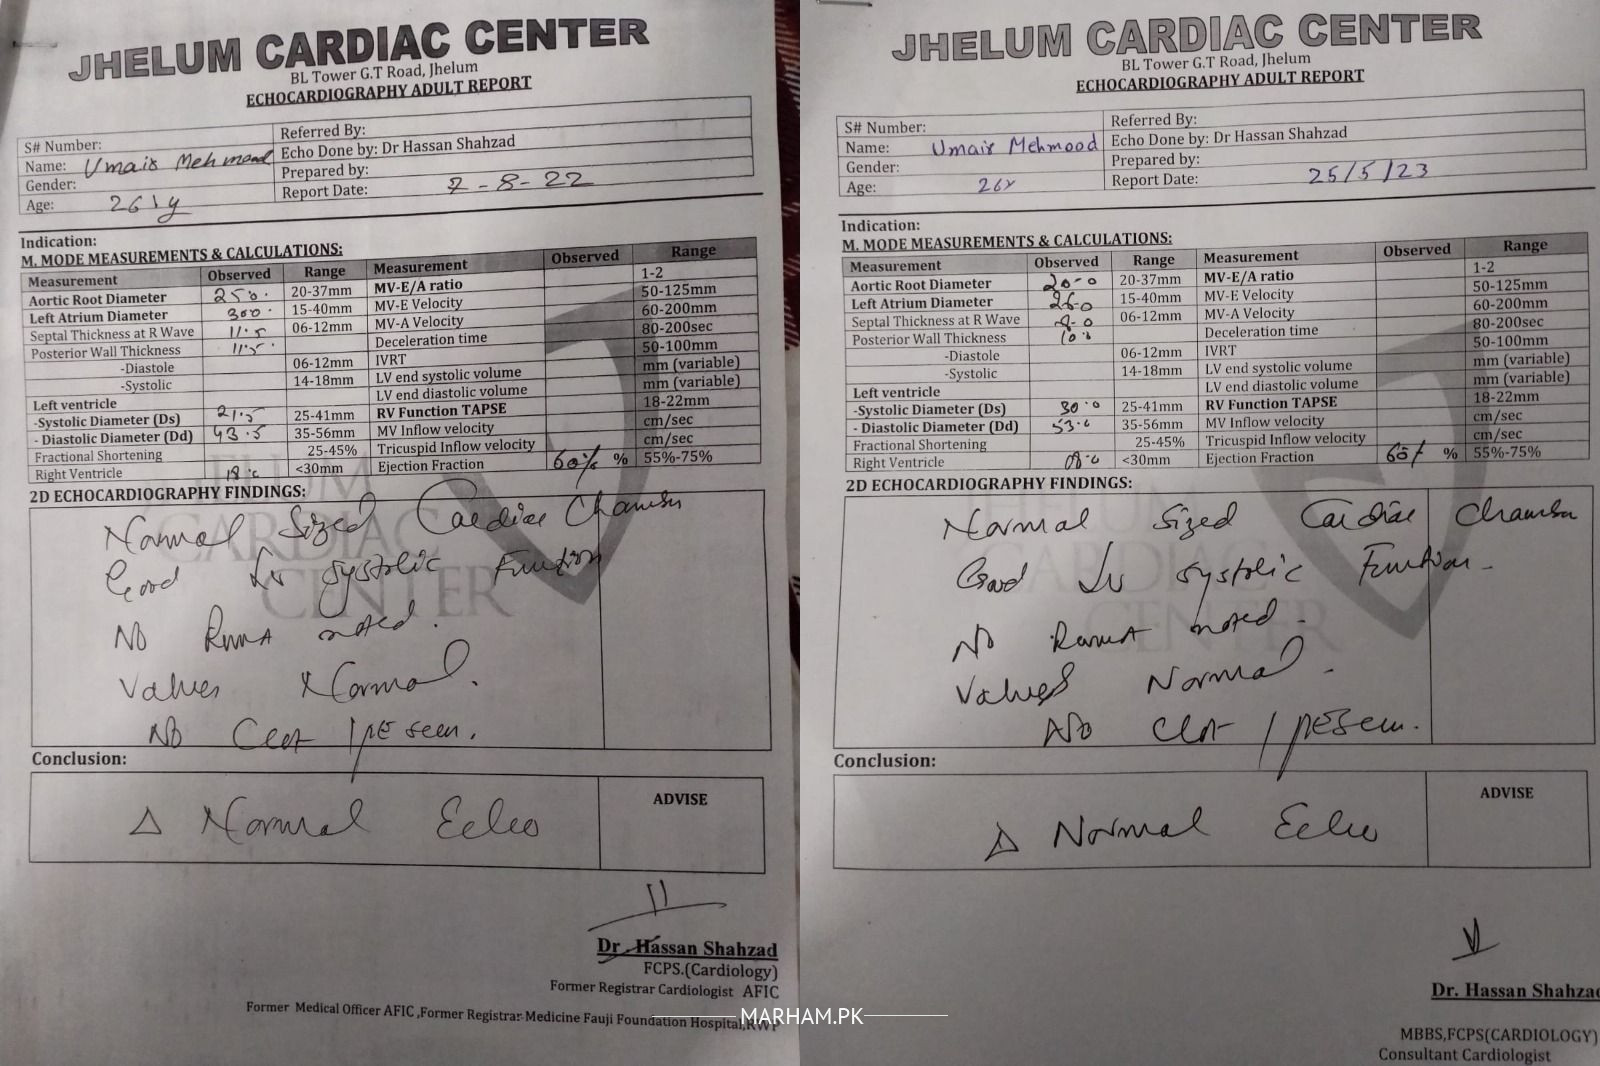 JHELUM CARDIAC CENTER
BL Tower G.T Road, Jhelum
ECHOCARDIOGRAPHY ADULT REPORT
S# Number:
Name: Umair Mehmood
Gender:
Age: 26
Referred By:
Echo Done by: Dr Hassan Shahzad
Prepared by:
Report Date: 2-8-22
Indication:
M. MODE MEASUREMENTS & CALCULATIONS:
Measurement Observed Range Measurement Observed Range
Aortic Root Diameter 25.0 20-37mm MV-E/A ratio 1-2
Left Atrium Diameter 30.0 15-40mm MV-E Velocity 50-125mm
Septal Thickness at R Wave 11.5 06-12mm MV-A Velocity 60-200mm
Posterior Wall Thickness 11.5 Deceleration time 80-200sec
-Diastole 06-12mm IVRT 50-100mm
-Systolic 14-18mm LV end systolic volume mm (variable)
Left ventricle LV end diastolic volume mm (variable)
-Systolic Diameter (Ds) 21.5 25-41mm RV Function TAPSE 18-22mm
- Diastolic Diameter (Dd) 43.5 35-56mm MV Inflow velocity cm/sec
Fractional Shortening 25-45% Tricuspid Inflow velocity cm/sec
Right Ventricle 18.0 <30mm Ejection Fraction 60% % 55%-75%
2D ECHOCARDIOGRAPHY FINDINGS:
Normal Sized Cardiac Chamber
Good LV Systolic Function
No RWMA noted.
Valves Normal.
No Clot / PE seen.
Conclusion:
Δ Normal Echo
ADVISE
Dr. Hassan Shahzad
FCPS.(Cardiology)
Former Registrar Cardiologist AFIC
Former Medical Officer AFIC ,Former Registrar Medicine Fauji Foundation Hospital,RWP
JHELUM CARDIAC CENTER
BL Tower G.T Road, Jhelum
ECHOCARDIOGRAPHY ADULT REPORT
S# Number:
Name: Umair Mehmood
Gender:
Age: 26
Referred By:
Echo Done by: Dr Hassan Shahzad
Prepared by:
Report Date: 25/5/23
Indication:
M. MODE MEASUREMENTS & CALCULATIONS:
Measurement Observed Range Measurement Observed Range
Aortic Root Diameter 20.0 20-37mm MV-E/A ratio 1-2
Left Atrium Diameter 26.0 15-40mm MV-E Velocity 50-125mm
Septal Thickness at R Wave 06-12mm MV-A Velocity 60-200mm
Posterior Wall Thickness 10.0 Deceleration time 80-200sec
-Diastole 06-12mm IVRT 50-100mm
-Systolic 14-18mm LV end systolic volume mm (variable)
Left ventricle LV end diastolic volume mm (variable)
-Systolic Diameter (Ds) 30.0 25-41mm RV Function TAPSE 18-22mm
- Diastolic Diameter (Dd) 53.0 35-56mm MV Inflow velocity cm/sec
Fractional Shortening 25-45% Tricuspid Inflow velocity cm/sec
Right Ventricle <30mm Ejection Fraction 60% % 55%-75%
2D ECHOCARDIOGRAPHY FINDINGS:
Normal Sized Cardiac Chamber
Good LV Systolic Function.
No RWMA noted.
Valves Normal.
No Clot / PE seen.
Conclusion:
Δ Normal Echo
ADVISE
Dr. Hassan Shahzad
MBBS,FCPS(CARDIOLOGY)
Consultant Cardiologist
MARHAM.PK